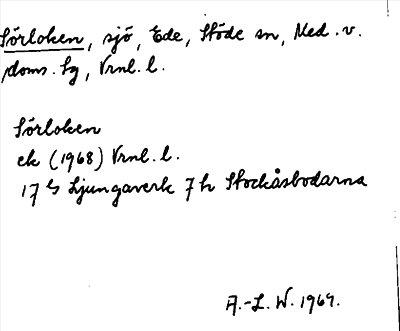 Sörloken, sjö, Ede, Stöde sn, Med. v.
doms. Sg, Vrnl. l.
Sörloken
ek (1968) Vrnl. l.
17 G Ljungaverk 7 h Stockåsbodarna
A.-L. W. 1969.